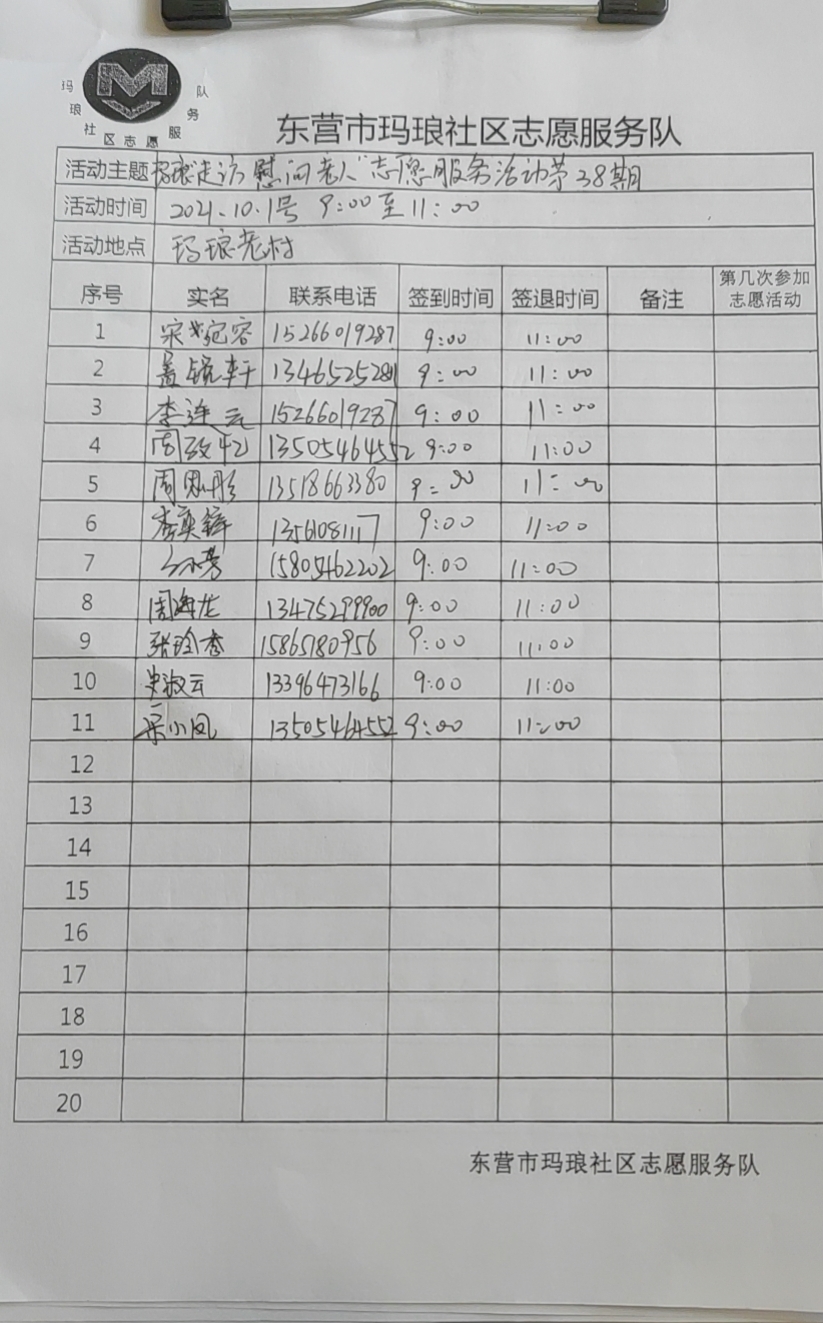 玛琅社区志愿服务队
东营市玛琅社区志愿服务队
活动主题 玛琅走访慰问老人"志愿服务活动第38期
活动时间 2021.10.1号 9:00至11:00
活动地点 玛琅老村
序号 实名 联系电话 签到时间 签退时间 备注 第几次参加志愿活动
1 15266019287 9:00 11:00
2 1346525281 9:00 11:00
3 李连云 15266019287 9:00 11:00
4 13505464552 9:00 11:00
5 13518663380 9:00 11:00
6 1356108117 9:00 11:00
7 15805462202 9:00 11:00
8 周海龙 13475299900 9:00 11:00
9 15865180956 9:00 11:00
10 史淑云 13396473166 9:00 11:00
11 宋小凤 13505464552 9:00 11:00
12
13
14
15
16
17
18
19
20
东营市玛琅社区志愿服务队